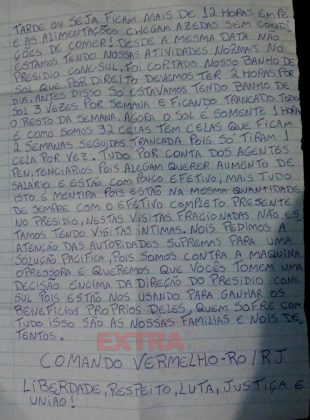 TARDE OU SEJA FICAM MAIS DE 12 HORAS EM PÉ
E AS ALIMENTAÇÕES CHEGAM AZEDAS SEM CONDI
ÇÕES DE COMER! DESDE A MESMA DATA NÃO
ESTAMOS TENDO NOSSAS ATIVIDADES NORMAIS NO
PRESIDIO CONE-SUL, FOI CORTADO NOSSO BANHO DE
SOL QUE POR DIREITO DEVEMOS TER 2 HORAS POR
DIA, ANTES DISSO SO ESTAVAMOS TENDO BANHO DE
SOL 3 VEZES POR SEMANA E FICANDO TRANCADO TODO
O RESTO DA SEMANA. AGORA O SOL É SOMENTE 1 HORA
E COMO SOMOS 32 CELAS TEM CELAS QUE FICAM
2 SEMANAS SEGUIDAS TRANCADA POIS SO TIRAM 1
CELA POR VEZ. TUDO POR CONTA DOS AGENTES
PENITENCIARIOS POIS ALEGAM QUERER AUMENTO DE
SALARIO E ESTÃO COM POUCO EFETIVO, MAIS TUDO
ISTO É MENTIRA POIS ESTÃO NA MESMA QUANTIDADE
DE SEMPRE COM O EFETIVO COMPLETO PRESENTE
NO PRESIDIO, NESTAS VISITAS FRACIONADAS NÃO ES
TAMOS TENDO VISITAS INTIMAS. NOIS PEDIMOS A
ATENÇÃO DAS AUTORIDADES SUPREMAS PARA UMA
SOLUÇÃO PACIFICA, POIS SOMOS CONTRA A MAQUINA
OPRESSORA E QUEREMOS QUE VOCÊS TOMEM UMA
DECISÃO ENCIMA DA DIREÇÃO DO PRESIDIO CONE
SUL POIS ESTÃO NOS USANDO PARA GANHAR OS
BENEFICIOS PROPRIOS DELES, QUEM SOFRE COM
TUDO ISSO SÃO AS NOSSAS FAMILIAS E NOIS DE
TENTOS.
EXTRA
COMANDO VERMELHO-RO/RJ
LIBERDADE, RESPEITO, LUTA, JUSTIÇA E
UNIÃO!